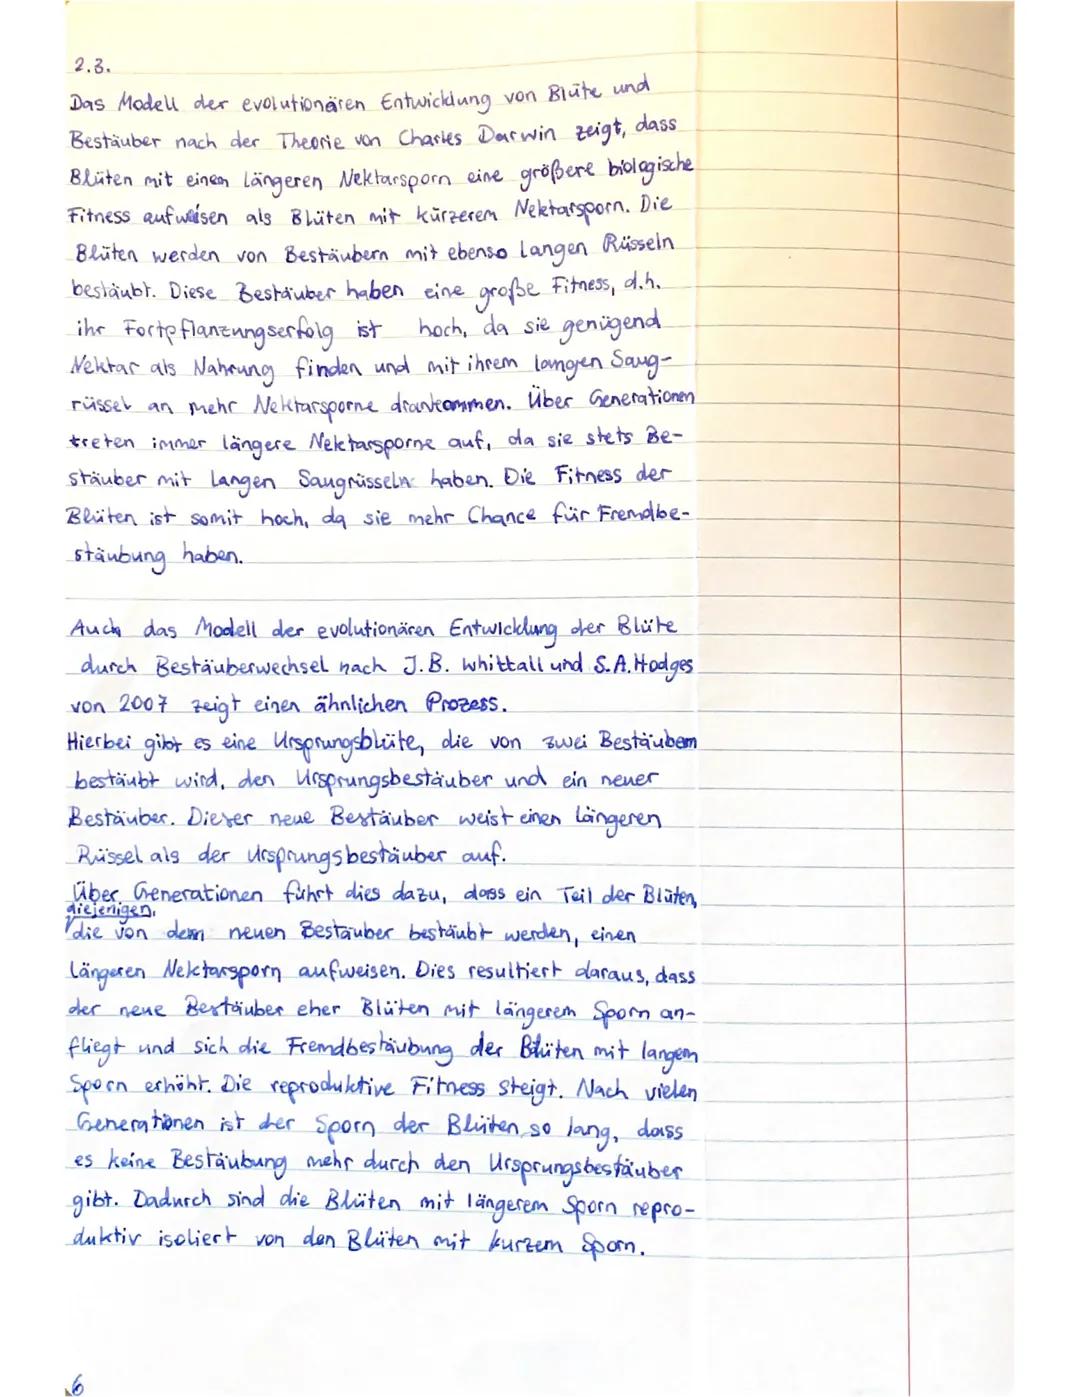 2.3.
Das Modell der evolutionären Entwicklung von Blüte und
Bestäuber nach der Theorie von Charles Darwin zeigt, dass
Blüten mit einem längeren Nektarsporn eine größere biologische
Fitness aufweisen als Blüten mit kürzerem Nektarsporn. Die
Blüten werden von Bestäubern mit ebenso langen Rüsseln
bestäubt. Diese Bestäuber haben eine große Fitness, d.h.
ihr Fortpflanzungserfolg ist hoch, da sie genügend
Nektar als Nahrung finden und mit ihrem langen Saug-
rüssel an mehr Nektarsporne drankommen. Über Generationen
treten immer längere Nektarsporne auf, da sie stets Be-
stäuber mit langen Saugrüsseln haben. Die Fitness der
Blüten ist somit hoch, da sie mehr Chance für Fremdbe-
stäubung haben.
Auch das Modell der evolutionären Entwicklung der Blüte
durch Bestäuberwechsel nach J.B. Whittall und S.A. Hodges
von 2007 zeigt einen ähnlichen Prozess.
Hierbei gibt es eine Ursprungsblüte, die von zwei Bestäubern
bestäubt wird, den Ursprungsbestäuber und ein neuer
Bestäuber. Dieser neue Bestäuber weist einen längeren
Rüssel als der Ursprungsbestäuber auf.
Über Generationen führt dies dazu, dass ein Teil der Blüten,
diejenigen,
die von dem neuen Bestäuber bestäubt werden, einen
längeren Nektarsporn aufweisen. Dies resultiert daraus, dass
der neue Bestäuber eher Blüten mit längerem Sporn an-
fliegt und sich die Fremdbestäubung der Blüten mit langem
Sporn erhöht. Die reproduktive Fitness steigt. Nach vielen
Generationen ist der Sporn der Blüten so lang, dass
es keine Bestäubung mehr durch den Ursprungsbestäuber
gibt. Dadurch sind die Blüten mit längerem Sporn repro-
duktiv isoliert von den Blüten mit kurzem Sporn.
6